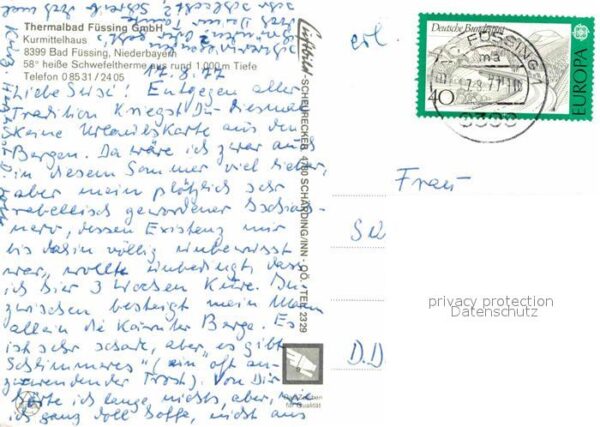 Thermalbad Füssing GmbH
Kurmittelhaus
8399 Bad Füssing, Niederbayern
58° heiße Schwefeltherme aus rund 1.000 m Tiefe
Telefon 0 85 31 / 24 05
17.8.77
Liebe Susi! Entgegen aller
Tradition kriegst Du diesmal
keine Urlaubskarte aus den
Bergen. Da wäre ich zwar auch
in diesem Sommer viel lieber,
aber mein plötzlich sehr
rebellisch gewordener Ischias-
nerv, dessen Existenz mir
bis dahin völlig unbewusst
war, wollte unbedingt, dass
ich hier 3 Wochen kure. In-
zwischen besteigt mein Mann
allein die Kärntner Berge. Es
ist sehr schade, aber "es gibt
Schlimmeres" (ein oft an-
zuwendender Trost). Von Dir
hörte ich lange nichts, aber, wie
ich ganz toll hoffe, nichts aus
Luftbild - SCHEURECKER, 4780 SCHÄRDING/INN - OÖ. - TEL. 2329
für Qualität
Deutsche Bundespost
40
EUROPA
FÜSSING
ma
17.8.77
Frau
D.D
privacy protection
Datenschutz